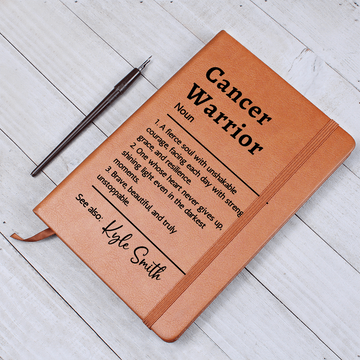 Cancer
Warrior
Noun
1. A fierce soul with unshakable
courage, facing each day with strength,
grace, and resilience.
2. One whose heart never gives up,
shining light even in the darkest
moments.
3. Brave, beautiful and truly
unstoppable.
See also:
Kyle Smith